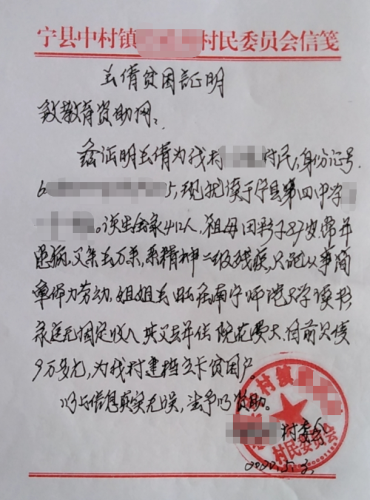 宁县中村镇 村民委员会信笺
倩贫困证明
致教育资助网:
兹证明 倩为我村 村民,身份证号
6 5,现就读于宁县第四中学
。该生全家4口人,祖母田 87岁,常年
患病,父亲 万荣,系精神二级残疾,只能从事简
单体力劳动,姐姐 在南宁师范大学读书
家庭无固定收入 花费大,目前欠债
9万多元,为我村建档立卡贫困户
以上信息真实无误,望予以资助。
村委会
村民委员会
2020.5.3